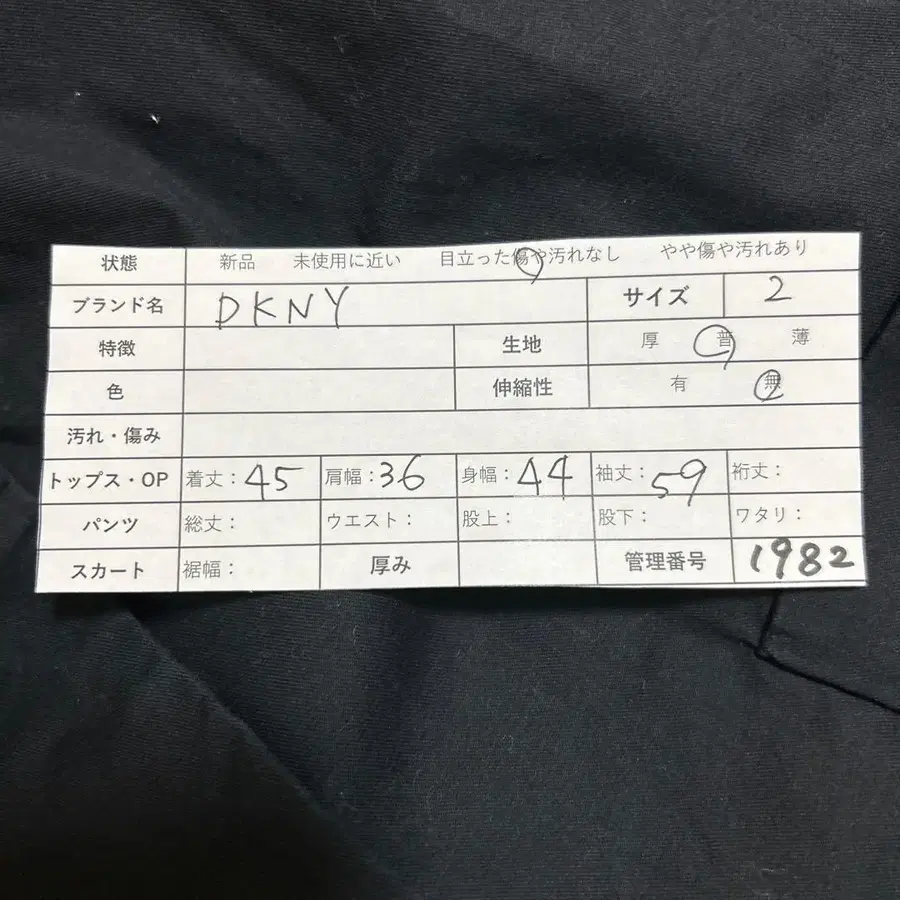 状態 新品 未使用に近い 目立った傷や汚れなし やや傷や汚れあり
ブランド名 DKNY サイズ 2
特徴 生地 厚 普 薄
色 伸縮性 有 無
汚れ・傷み
トップス・OP 着丈：45 肩幅：36 身幅：44 袖丈：59 裄丈：
パンツ 総丈： ウエスト： 股上： 股下： ワタリ：
スカート 裾幅： 厚み 管理番号 1982